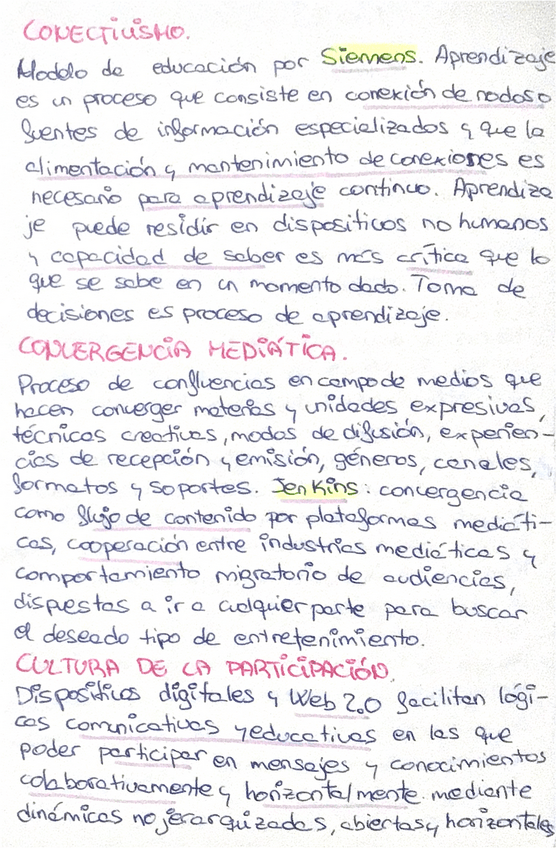 CONECTIVISMO.
Modelo de educación por Siemens. Aprendizaje
es un proceso que consiste en conexión de nodos o
fuentes de información especializados y que la
alimentación y mantenimiento de conexiones es
necesario para aprendizaje continuo. Aprendiza
je puede residir en dispositivos no humanos
y capacidad de saber es más crítica que lo
que se sabe en un momento dado. Toma de
decisiones es proceso de aprendizaje.
CONVERGENCIA MEDIÁTICA.
Proceso de confluencias en campo de medios que
hacen converger materias y unidades expresivas,
técnicas creativas, modos de difusión, experien-
cias de recepción y emisión, géneros, canales,
formatos y soportes. Jenkins: convergencia
como flujo de contenido por plataformas mediáti-
cas, cooperación entre industrias mediáticas y
comportamiento migratorio de audiencias,
dispuestas a ir a cualquier parte para buscar
el deseado tipo de entretenimiento.
CULTURA DE LA PARTICIPACIÓN.
Dispositivos digitales y Web 2.0 facilitan lógi-
cas comunicativas y educativas en las que
poder participar en mensajes y conocimientos
colaborativamente y horizontalmente mediante
dinámicas no jerarquizadas, abiertas y horizontales